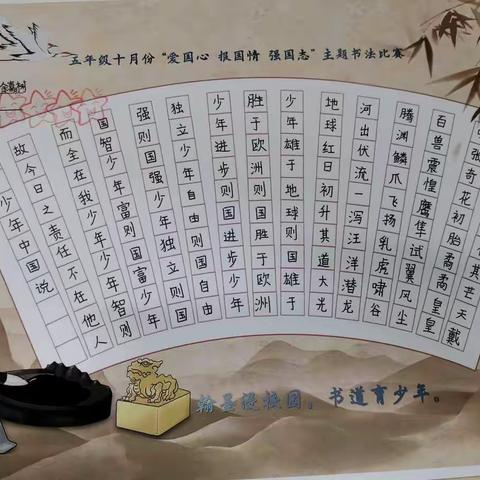 五年级十月份“爱国心 报国情 强国志”主题书法比赛
少年中国说
故今日之责任不在他人
而全在我少年少年智则
国智少年富则国富少年
强则国强少年独立则国
独立少年自由则国自由
少年进步则国进步少年
胜于欧洲则国胜于欧洲
少年雄于地球则国雄于
地球红日初升其道大光
河出伏流一泻汪洋潜龙
腾渊鳞爪飞扬乳虎啸谷
百兽震惶鹰隼试翼风尘
张奇花初胎矞矞皇皇
其芒天戴
翰墨浸校园，书道育少年。